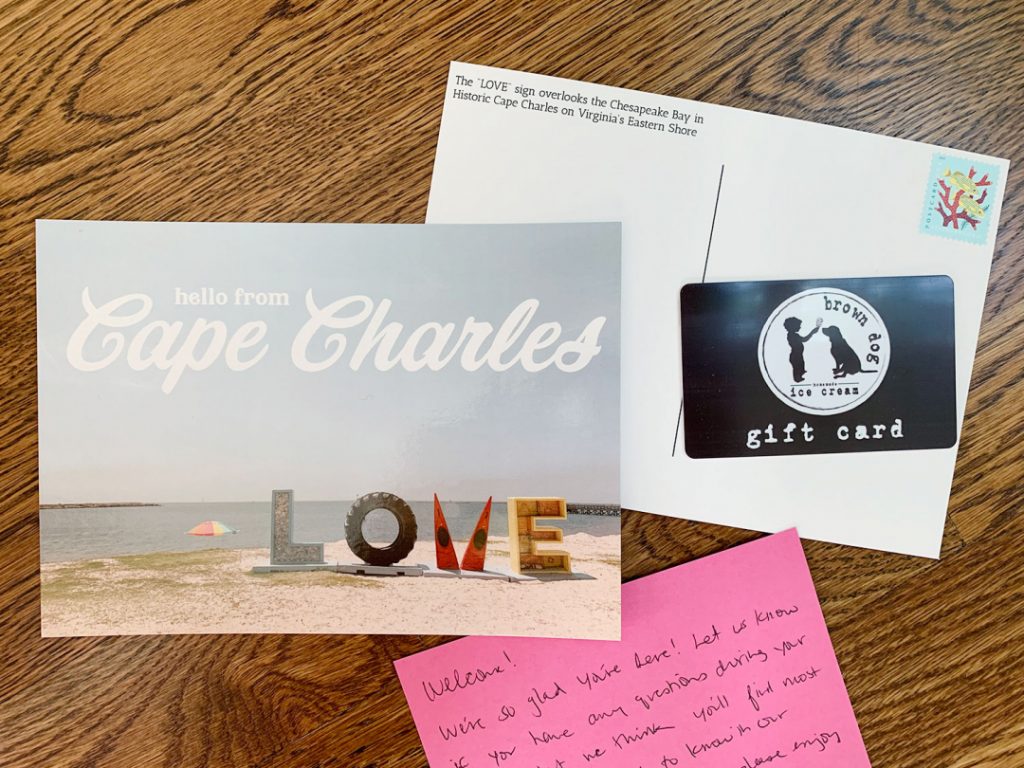 The "LOVE" sign overlooks the Chesapeake Bay in
Historic Cape Charles on Virginia's Eastern Shore
POSTCARD
hello from
Cape Charles
LOVE
brown dog
homemade
ice cream
gift card
Welcome!
We're so glad you're here! Let us know
if you have any questions during your
we think you'll find most
to know in our
please enjoy